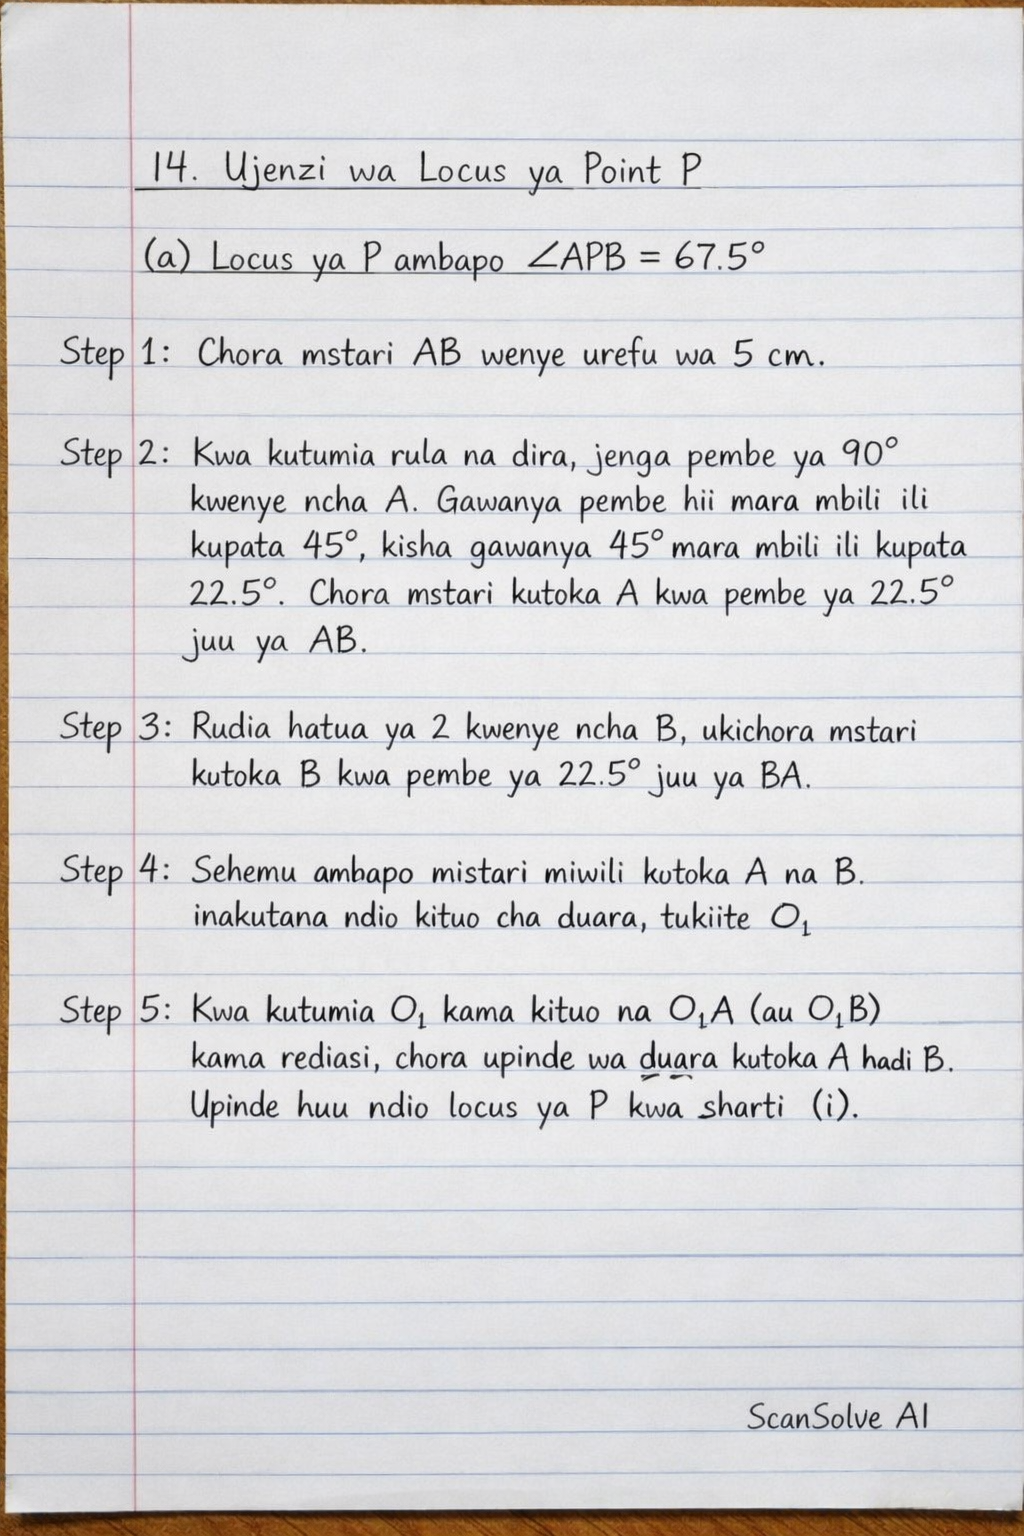 14. Ujenzi wa Locus ya Point P
(a) Locus ya P ambapo ∠APB = 67.5°
Step 1: Chora mstari AB wenye urefu wa 5 cm.
Step 2: Kwa kutumia rula na dira, jenga pembe ya 90°
kwenye ncha A. Gawanya pembe hii mara mbili ili
kupata 45°, kisha gawanya 45° mara mbili ili kupata
22.5°. Chora mstari kutoka A kwa pembe ya 22.5°
juu ya AB.
Step 3: Rudia hatua ya 2 kwenye ncha B, ukichora mstari
kutoka B kwa pembe ya 22.5° juu ya BA.
Step 4: Sehemu ambapo mistari miwili kutoka A na B.
inakutana ndio kituo cha duara, tukiite O₁
Step 5: Kwa kutumia O₁ kama kituo na O₁A (au O₁B)
kama rediasi, chora upinde wa duara kutoka A hadi B.
Upinde huu ndio locus ya P kwa sharti (i).
ScanSolve AI